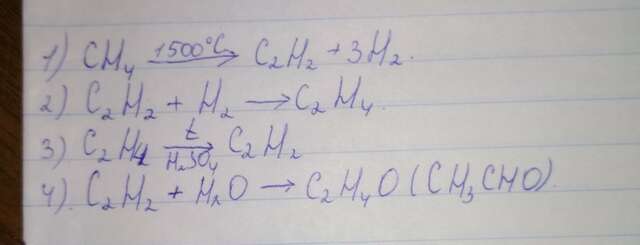 1) CH₄ 1500°C → C₂H₂ + 3H₂.
2) C₂H₂ + H₂ → C₂H₄.
3) C₂H₄ t → H₂SO₄ C₂H₂
4). C₂H₂ + H₂O → C₂H₄O (CH₃CHO).